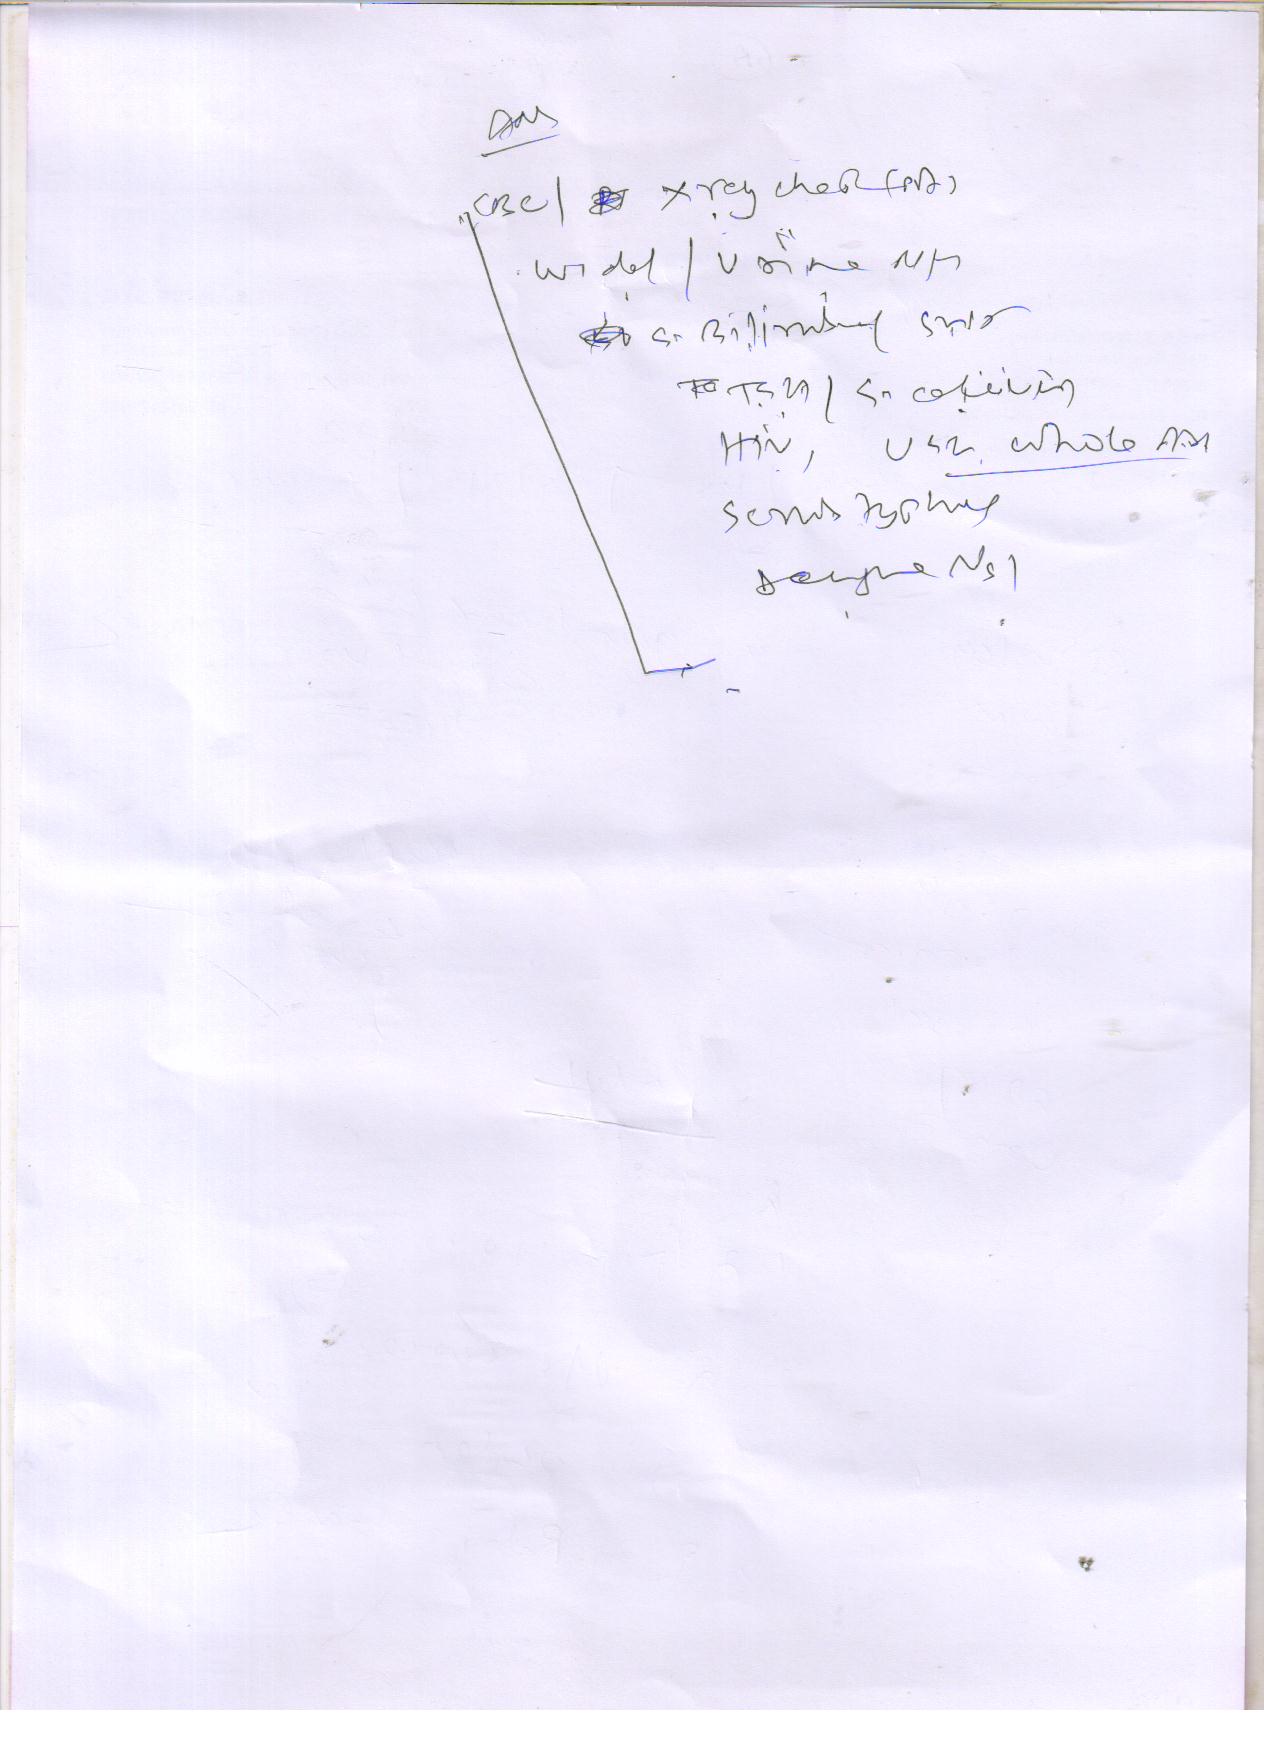 CBC / X ray chest (PA)
widal / Urine R/M
S. Bilirubin SGPT
TSH / S. creatinin
HIV, USG whole Abd
Scrub typhus
Dengue NS1